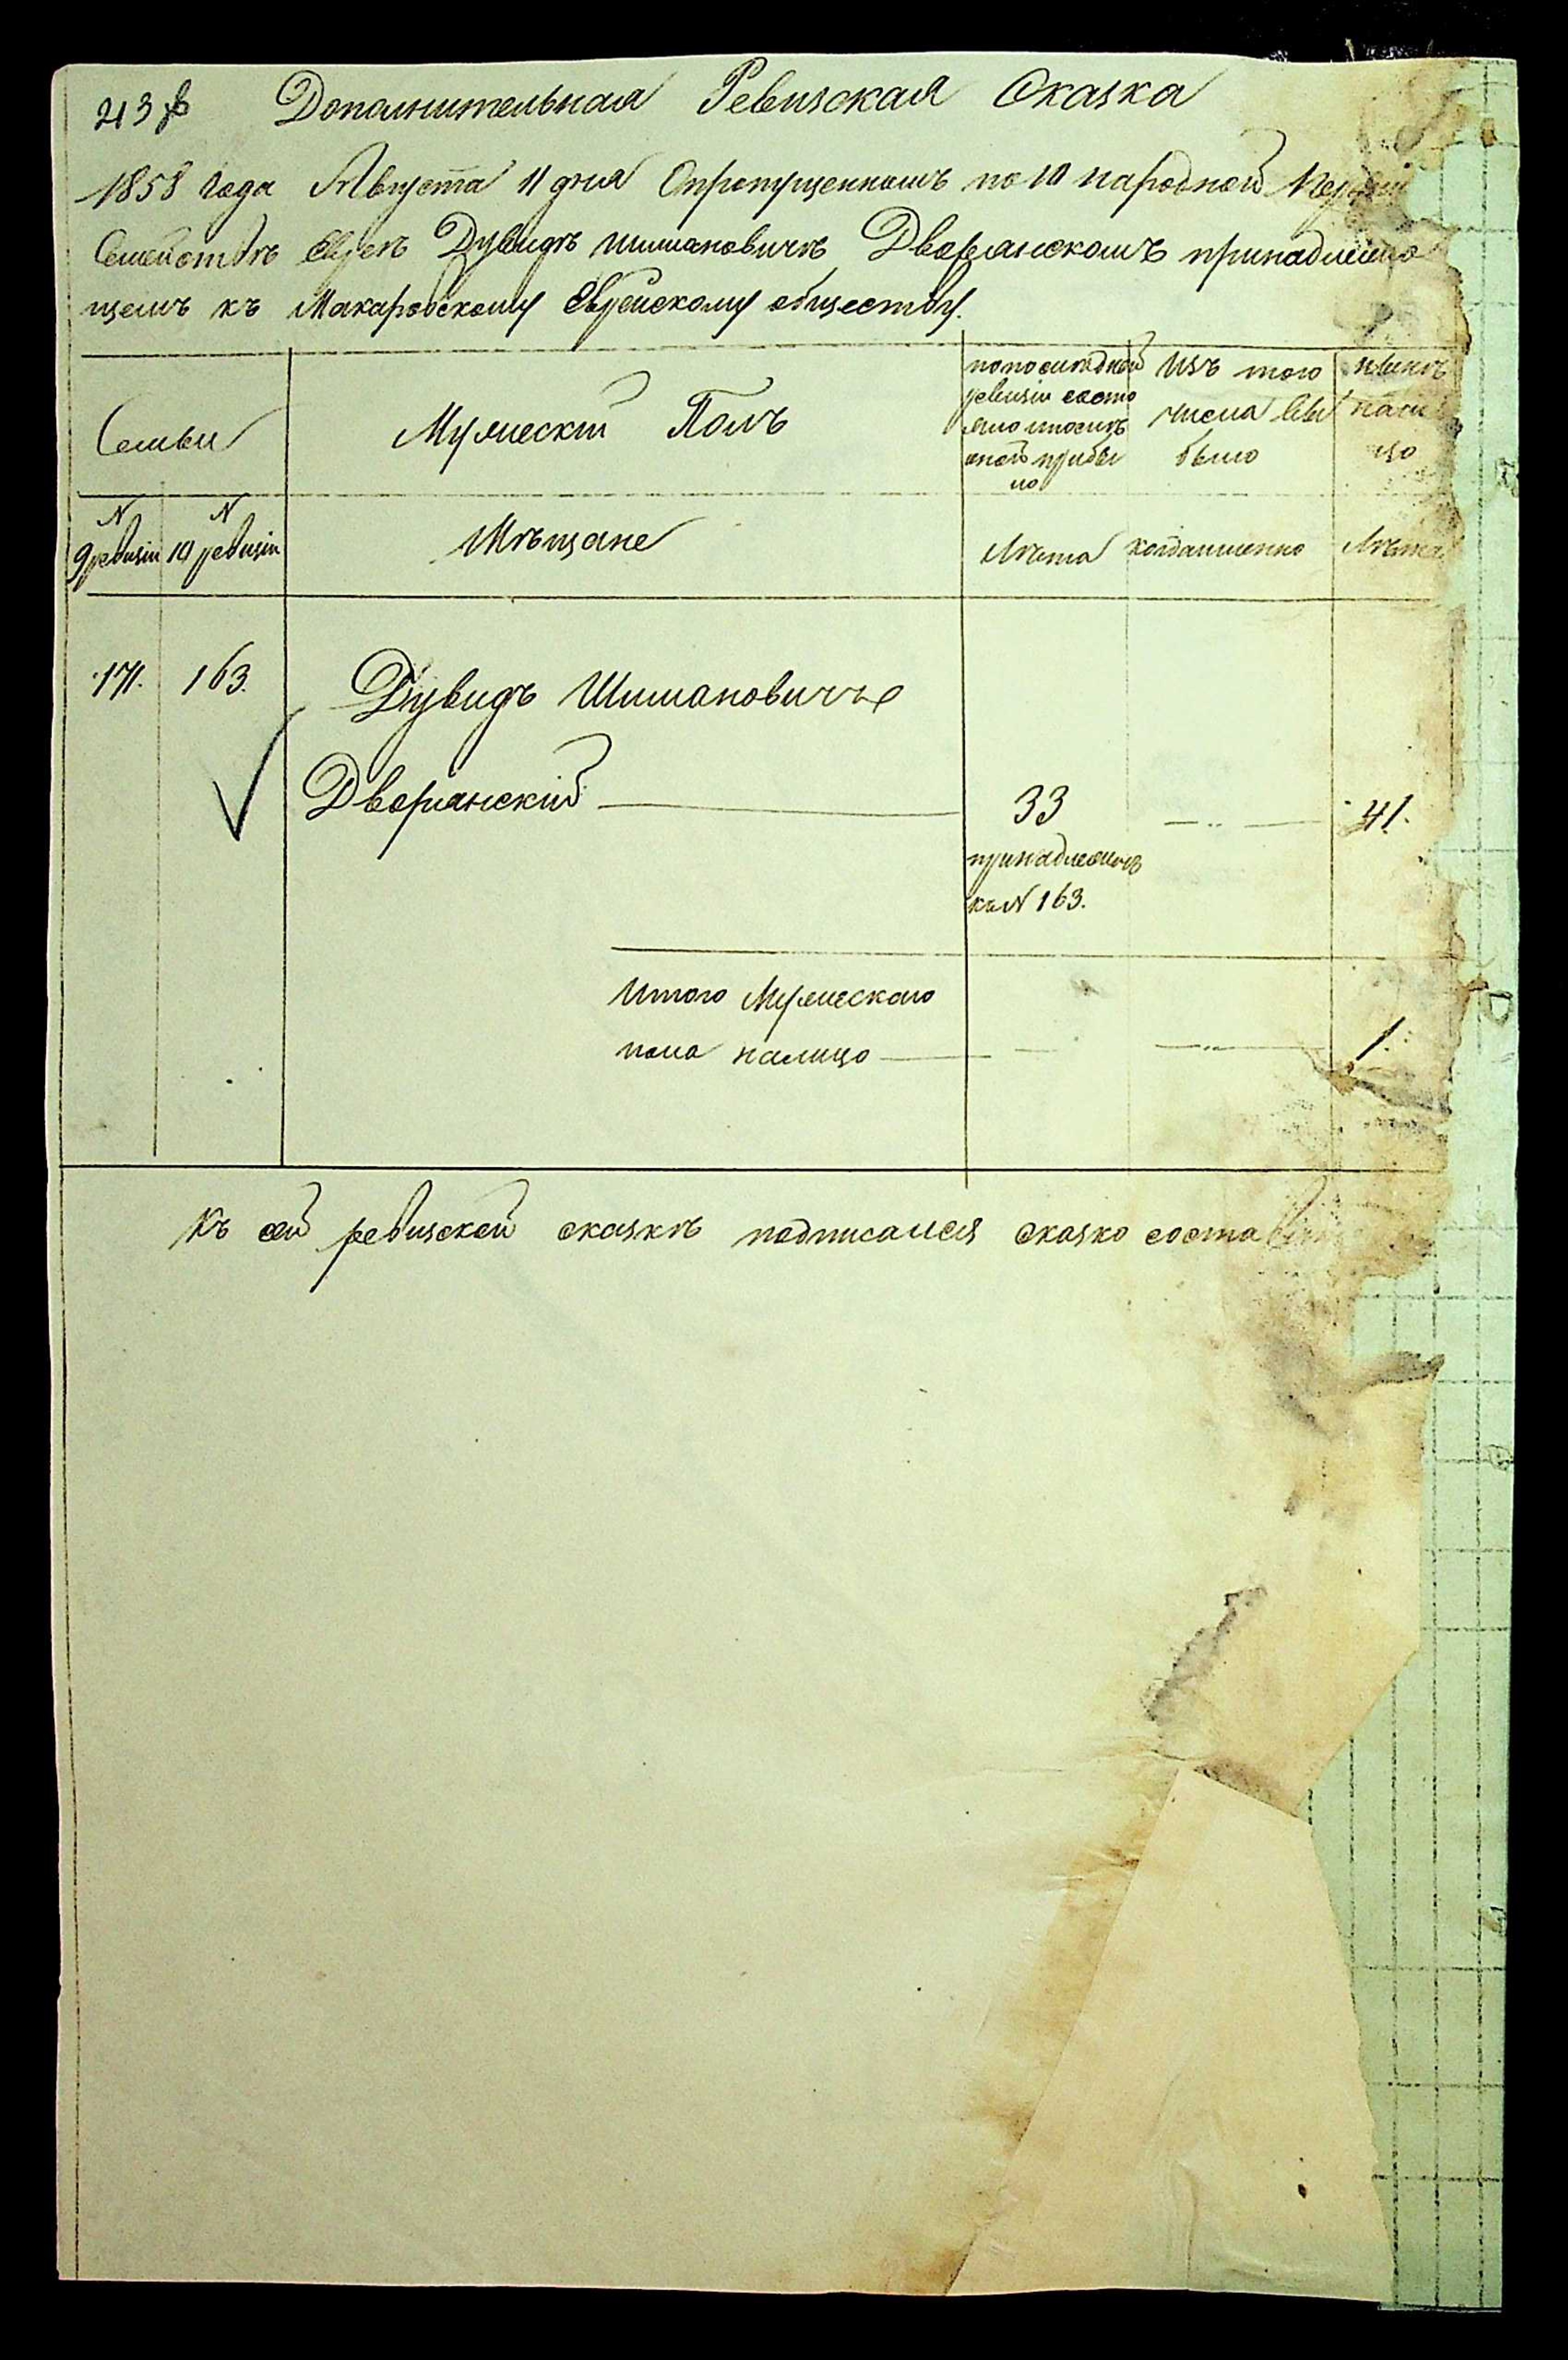 Дополнительная Ревизская Сказка
1858 года Августа 11 дня О пропущенномъ по 10 народной
Семействѣ Еврея Дувидѣ Шимановичѣ Дворянскомъ принадлежа
щемъ къ Макаровскому Еврейскому обществу.
Семьи
Мужескій Полъ
по послѣдней
ревизіи состо
яло и послѣ
оной прибы
ло
Изъ того
числа вы
было
нынѣ
нали
цо
N
9 ревизіи
N
10 ревизіи
Мѣщане
Лѣта
когда именно
Лѣта
171.
163.
Дувидъ Шимановичъ
Дворянскій
33
41.
принадлежитъ
къ N 163.
Итого Мужескаго
пола налицо
1.
Къ сей ревизской сказкѣ подписался сказко соста